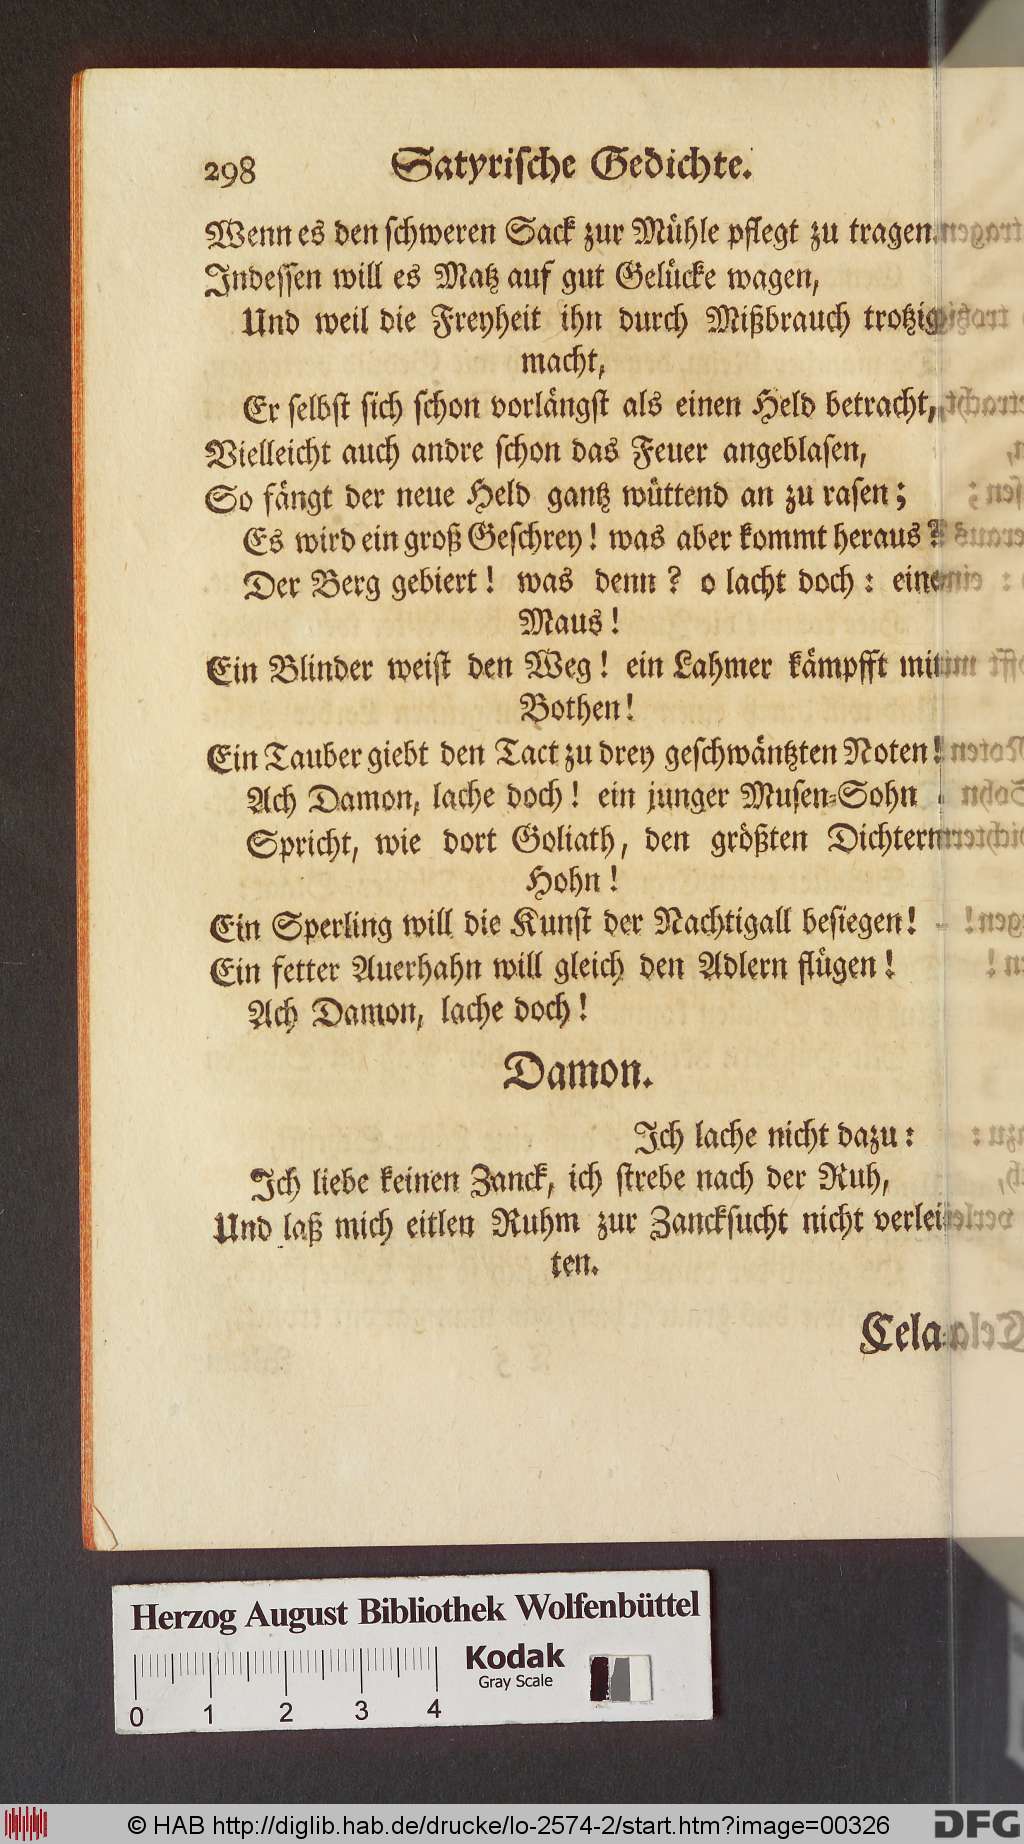 298 Satyrische Gedichte.
Wenn es den schweren Sack zur Mühle pflegt zu tragen.
Indessen will es Matz auf gut Gelücke wagen,
Und weil die Freyheit ihn durch Mißbrauch trotzig
macht,
Er selbst sich schon vorlängst als einen Held betracht,
Vielleicht auch andre schon das Feuer angeblasen,
So fängt der neue Held gantz wüttend an zu rasen;
Es wird ein groß Geschrey! was aber kommt heraus?
Der Berg gebiert! was denn? o lacht doch: eine
Maus!
Ein Blinder weist den Weg! ein Lahmer kämpfft mit
Bothen!
Ein Tauber giebt den Tact zu drey geschwäntzten Noten!
Ach Damon, lache doch! ein junger Musen-Sohn
Spricht, wie dort Goliath, den größten Dichtern
Hohn!
Ein Sperling will die Kunst der Nachtigall besiegen!
Ein fetter Auerhahn will gleich den Adlern flügen!
Ach Damon, lache doch!
Damon.
Ich lache nicht dazu:
Ich liebe keinen Zanck, ich strebe nach der Ruh,
Und laß mich eitlen Ruhm zur Zancksucht nicht verlei-
ten.
Cela-
Herzog August Bibliothek Wolfenbüttel
Kodak
Gray Scale
0 1 2 3 4
© HAB http://diglib.hab.de/drucke/lo-2574-2/start.htm?image=00326
DFG